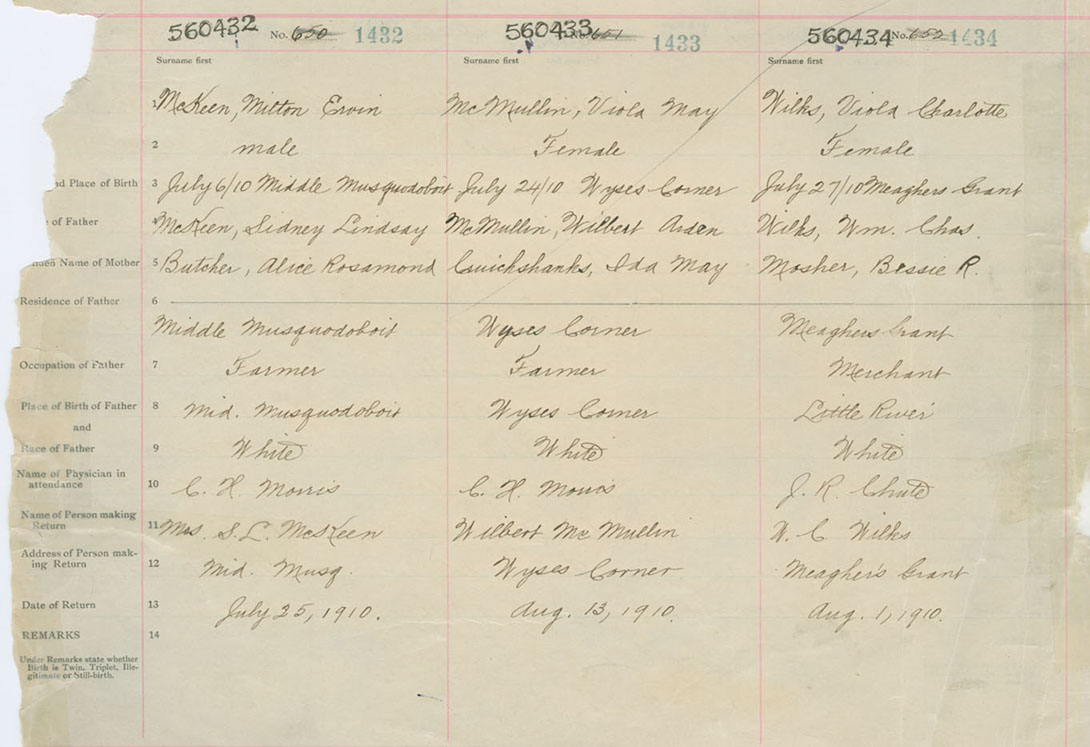 560432 No. 650 1432 560433 No. 651 1433 560434 No. 652 1434
Surname first Surname first Surname first
1 McKeen, Milton Ervin McMullin, Viola May Wilks, Viola Charlotte
2 male Female Female
nd Place of Birth 3 July 6/10 Middle Musquodoboit July 24/10 Wyses Corner July 27/10 Meaghers Grant
of Father 4 McKeen, Sidney Lindsay McMullin, Wilbert Arden Wilks, Wm. Chas.
iden Name of Mother 5 Butcher, Alice Rosamond Cruickshanks, Ida May Mosher, Bessie R.
Residence of Father 6
Middle Musquodoboit Wyses Corner Meaghers Grant
Occupation of Father 7 Farmer Farmer Merchant
Place of Birth of Father 8 Mid. Musquodoboit Wyses Corner Little River
and
Race of Father 9 White White White
Name of Physician in
attendance 10 C. H. Morris C. H. Morris J. R. Chute
Name of Person making
Return 11 Mrs. S. L. McKeen Wilbert McMullin W. C. Wilks
Address of Person mak-
ing Return 12 Mid. Musq. Wyses Corner Meagher's Grant
Date of Return 13 July 25, 1910. Aug. 13, 1910. Aug. 1, 1910.
REMARKS 14
Under Remarks state whether
Birth is Twin, Triplet, Ille-
gitimate or Still-birth.